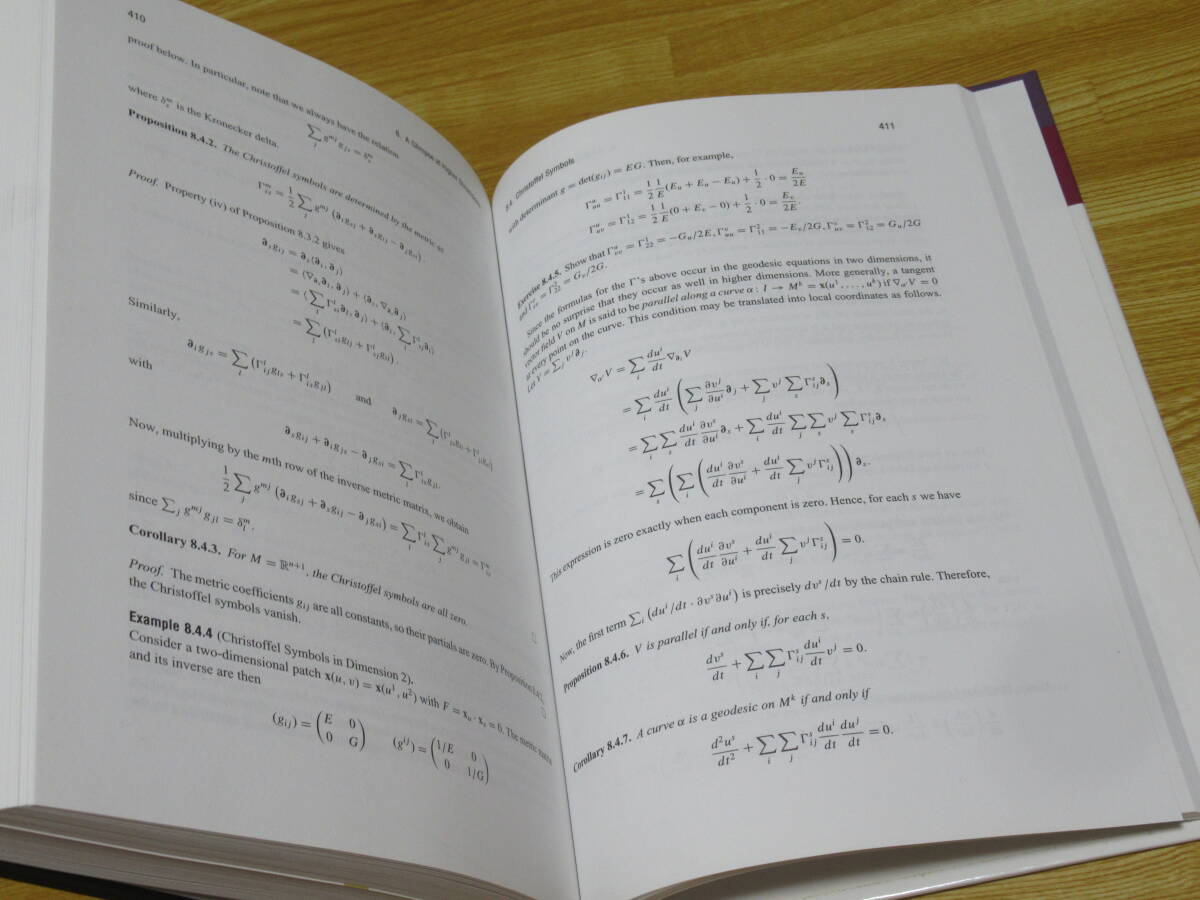 410
8. A Glimpse at Higher Dimensions
proof below. In particular, note that we always have the relation
∑_j g^{mj} g_{js} = δ_s^m
where δ_s^m is the Kronecker delta.
Proposition 8.4.2. The Christoffel symbols are determined by the metric as
Γ_{is}^m = 1/2 ∑_j g^{mj} (∂_i g_{sj} + ∂_s g_{ij} − ∂_j g_{si}).
Proof. Property (iv) of Proposition 8.3.2 gives
∂_s g_{ij} = ∂_s⟨∂_i, ∂_j⟩
= ⟨∇_{∂_s}∂_i, ∂_j⟩ + ⟨∂_i, ∇_{∂_s}∂_j⟩
= ⟨∑_l Γ_{si}^l ∂_l, ∂_j⟩ + ⟨∂_i, ∑_l Γ_{sj}^l ∂_l⟩
= ∑_l (Γ_{si}^l g_{lj} + Γ_{sj}^l g_{il}).
Similarly,
∂_i g_{js} = ∑_l (Γ_{ij}^l g_{ls} + Γ_{is}^l g_{jl}) and ∂_j g_{si} = ∑_l (Γ_{js}^l g_{li} + Γ_{ji}^l g_{sl})
with
∂_s g_{ij} + ∂_i g_{js} − ∂_j g_{si} = ∑_l Γ_{is}^l g_{jl}.
Now, multiplying by the mth row of the inverse metric matrix, we obtain
1/2 ∑_j g^{mj} (∂_i g_{sj} + ∂_s g_{ij} − ∂_j g_{si}) = ∑_l Γ_{is}^l ∑_j g^{mj} g_{jl} = Γ_{is}^m
since ∑_j g^{mj} g_{jl} = δ_l^m.
Corollary 8.4.3. For M = ℝ^{n+1}, the Christoffel symbols are all zero.
Proof. The metric coefficients g_{ij} are all constants, so their partials are zero. By Proposition 8.4.2,
the Christoffel symbols vanish. □
Example 8.4.4 (Christoffel Symbols in Dimension 2).
Consider a two-dimensional patch x(u, v) = x(u^1, u^2) with F = x_u · x_v = 0. The metric matrix
and its inverse are then
(g_{ij}) = (E 0 / 0 G) (g^{ij}) = (1/E 0 / 0 1/G)
8.4. Christoffel Symbols
411
with determinant g = det(g_{ij}) = EG. Then, for example,
Γ_{uu}^u = Γ_{11}^1 = 1/2 1/E (E_u + E_u − E_u) + 1/2 · 0 = E_u/2E
Γ_{uv}^u = Γ_{12}^1 = 1/2 1/E (0 + E_v − 0) + 1/2 · 0 = E_v/2E.
Exercise 8.4.5. Show that Γ_{vv}^u = Γ_{22}^1 = −G_u/2E, Γ_{uu}^v = Γ_{11}^2 = −E_v/2G, Γ_{uv}^v = Γ_{12}^2 = G_u/2G
and Γ_{vv}^v = Γ_{22}^2 = G_v/2G.
Since the formulas for the Γ's above occur in the geodesic equations in two dimensions, it
should be no surprise that they occur as well in higher dimensions. More generally, a tangent
vector field V on M is said to be parallel along a curve α: I → M^k = x(u^1, ..., u^k) if ∇_{α'}V = 0
at every point on the curve. This condition may be translated into local coordinates as follows.
Let V = ∑_j v^j ∂_j.
∇_{α'}V = ∑_i du^i/dt ∇_{∂_i}V
= ∑_i du^i/dt (∑_j ∂v^j/∂u^i ∂_j + ∑_j v^j ∑_s Γ_{ij}^s ∂_s)
= ∑_i ∑_s du^i/dt ∂v^s/∂u^i ∂_s + ∑_i du^i/dt ∑_j ∑_s v^j ∑_s Γ_{ij}^s ∂_s
= ∑_s (∑_i (du^i/dt ∂v^s/∂u^i + du^i/dt ∑_j v^j Γ_{ij}^s)) ∂_s.
This expression is zero exactly when each component is zero. Hence, for each s we have
∑_i (du^i/dt ∂v^s/∂u^i + du^i/dt ∑_j v^j Γ_{ij}^s) = 0.
Now, the first term ∑_i (du^i/dt · ∂v^s ∂u^i) is precisely dv^s/dt by the chain rule. Therefore,
Proposition 8.4.6. V is parallel if and only if, for each s,
dv^s/dt + ∑_i ∑_j Γ_{ij}^s du^i/dt v^j = 0.
Corollary 8.4.7. A curve α is a geodesic on M^k if and only if
d^2u^s/dt^2 + ∑_i ∑_j Γ_{ij}^s du^i/dt du^j/dt = 0.